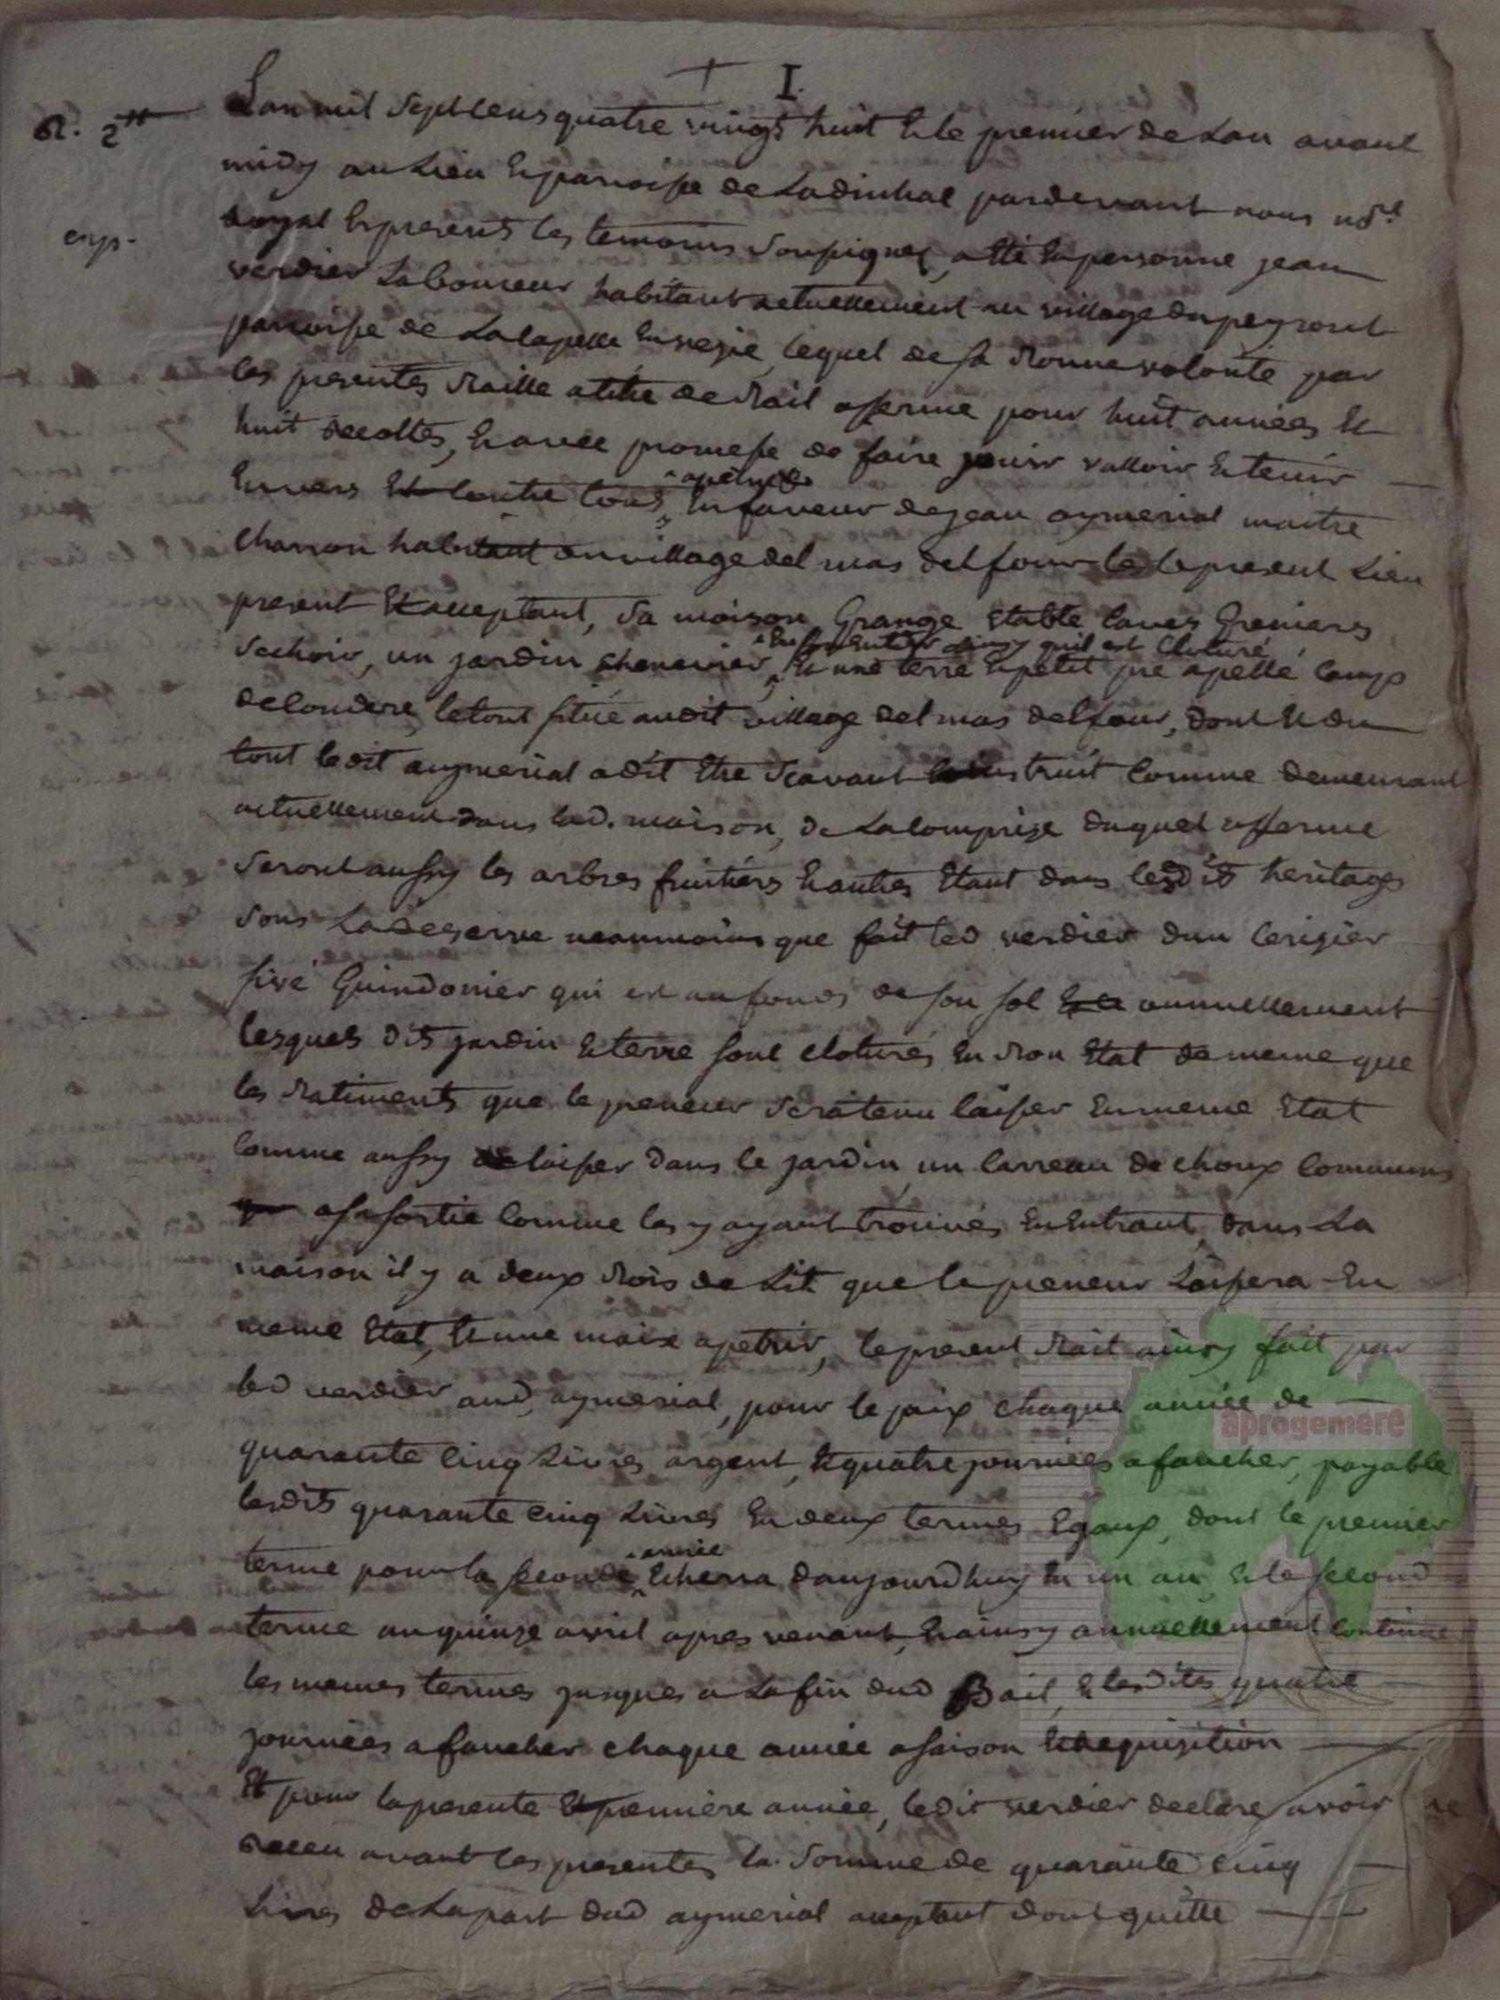 I.
R. 2tt
L'an mil sept cens quatre vingt huit & le premier de Lan avant
midy au Lieu & parroisse de Ladinhac pardevant nous nore
exp.
Royal & presents les temoins Soussignés, a été en personne jean
verdier Laboureur habitant actuellement au village du peyrout
parroisse de Lacapelle en vezie, lequel de sa Bonne volonté par
les presentes Baille a titre de Bail afferme pour huit années &
huit recoltes, & avec promesse de faire jouir valloir & tenir
envers & contre tous, en faveur de jean aymerial maitre
charron habitant au village del mas del four le present Lieu
present & acceptant, Sa maison Grange Etable caves Greniers
^ En son entier ainsy quil est Cloturé
Sechoir, un jardin chenevier, ^ & une terre & petit pré apellé camp
de loudere, le tout situé audit village del mas del four, dont & du
tout ledit aymerial a dit être Scavant & instruit comme demeurant
actuellement dans lad. maison, de La comprise duquel afferme
Seront aussy les arbres fruitiers & autres Etant dans lesdits heritages
Sous La Reserve neanmoins que fait led verdier dun Cerizier
Guindonier qui est au fonds de son sol annuellement
lesquels dits jardin & terre sont cloturés en Bon Etat de meme que
les Batiments que le preneur Sera tenu laisser en meme Etat
comme aussy de laisser dans le jardin un carreau de choux communs
assortie comme les y ayant trouvés en Entrant, dans La
maison il y a deux Bois de Lit que le preneur Laissera En
meme Etat, & une maix a petrir, le present Bail ainsy fait par
led verdier aud aymerial, pour le prix chaque année de
quarante cinq Livres argent, & quatre journées a faucher, payable
lesdits quarante cinq Livres en deux termes Egaux, dont le premier
^ année
terme pour la seconde ^ Echerra d'aujourdhuy en un an & le second
terme au quinze avril apres venant, & ainsy annuellement continuer
les memes termes jusques a La fin dud Bail, & lesdites quatre
journées a faucher chaque année a saison & requisition
Et pour la presente & premiere année, ledit verdier declare avoir
Receu avant les presentes la Somme de quarante cinq
Livres de La part dud aymerial acceptant dont quitte
aprogemere